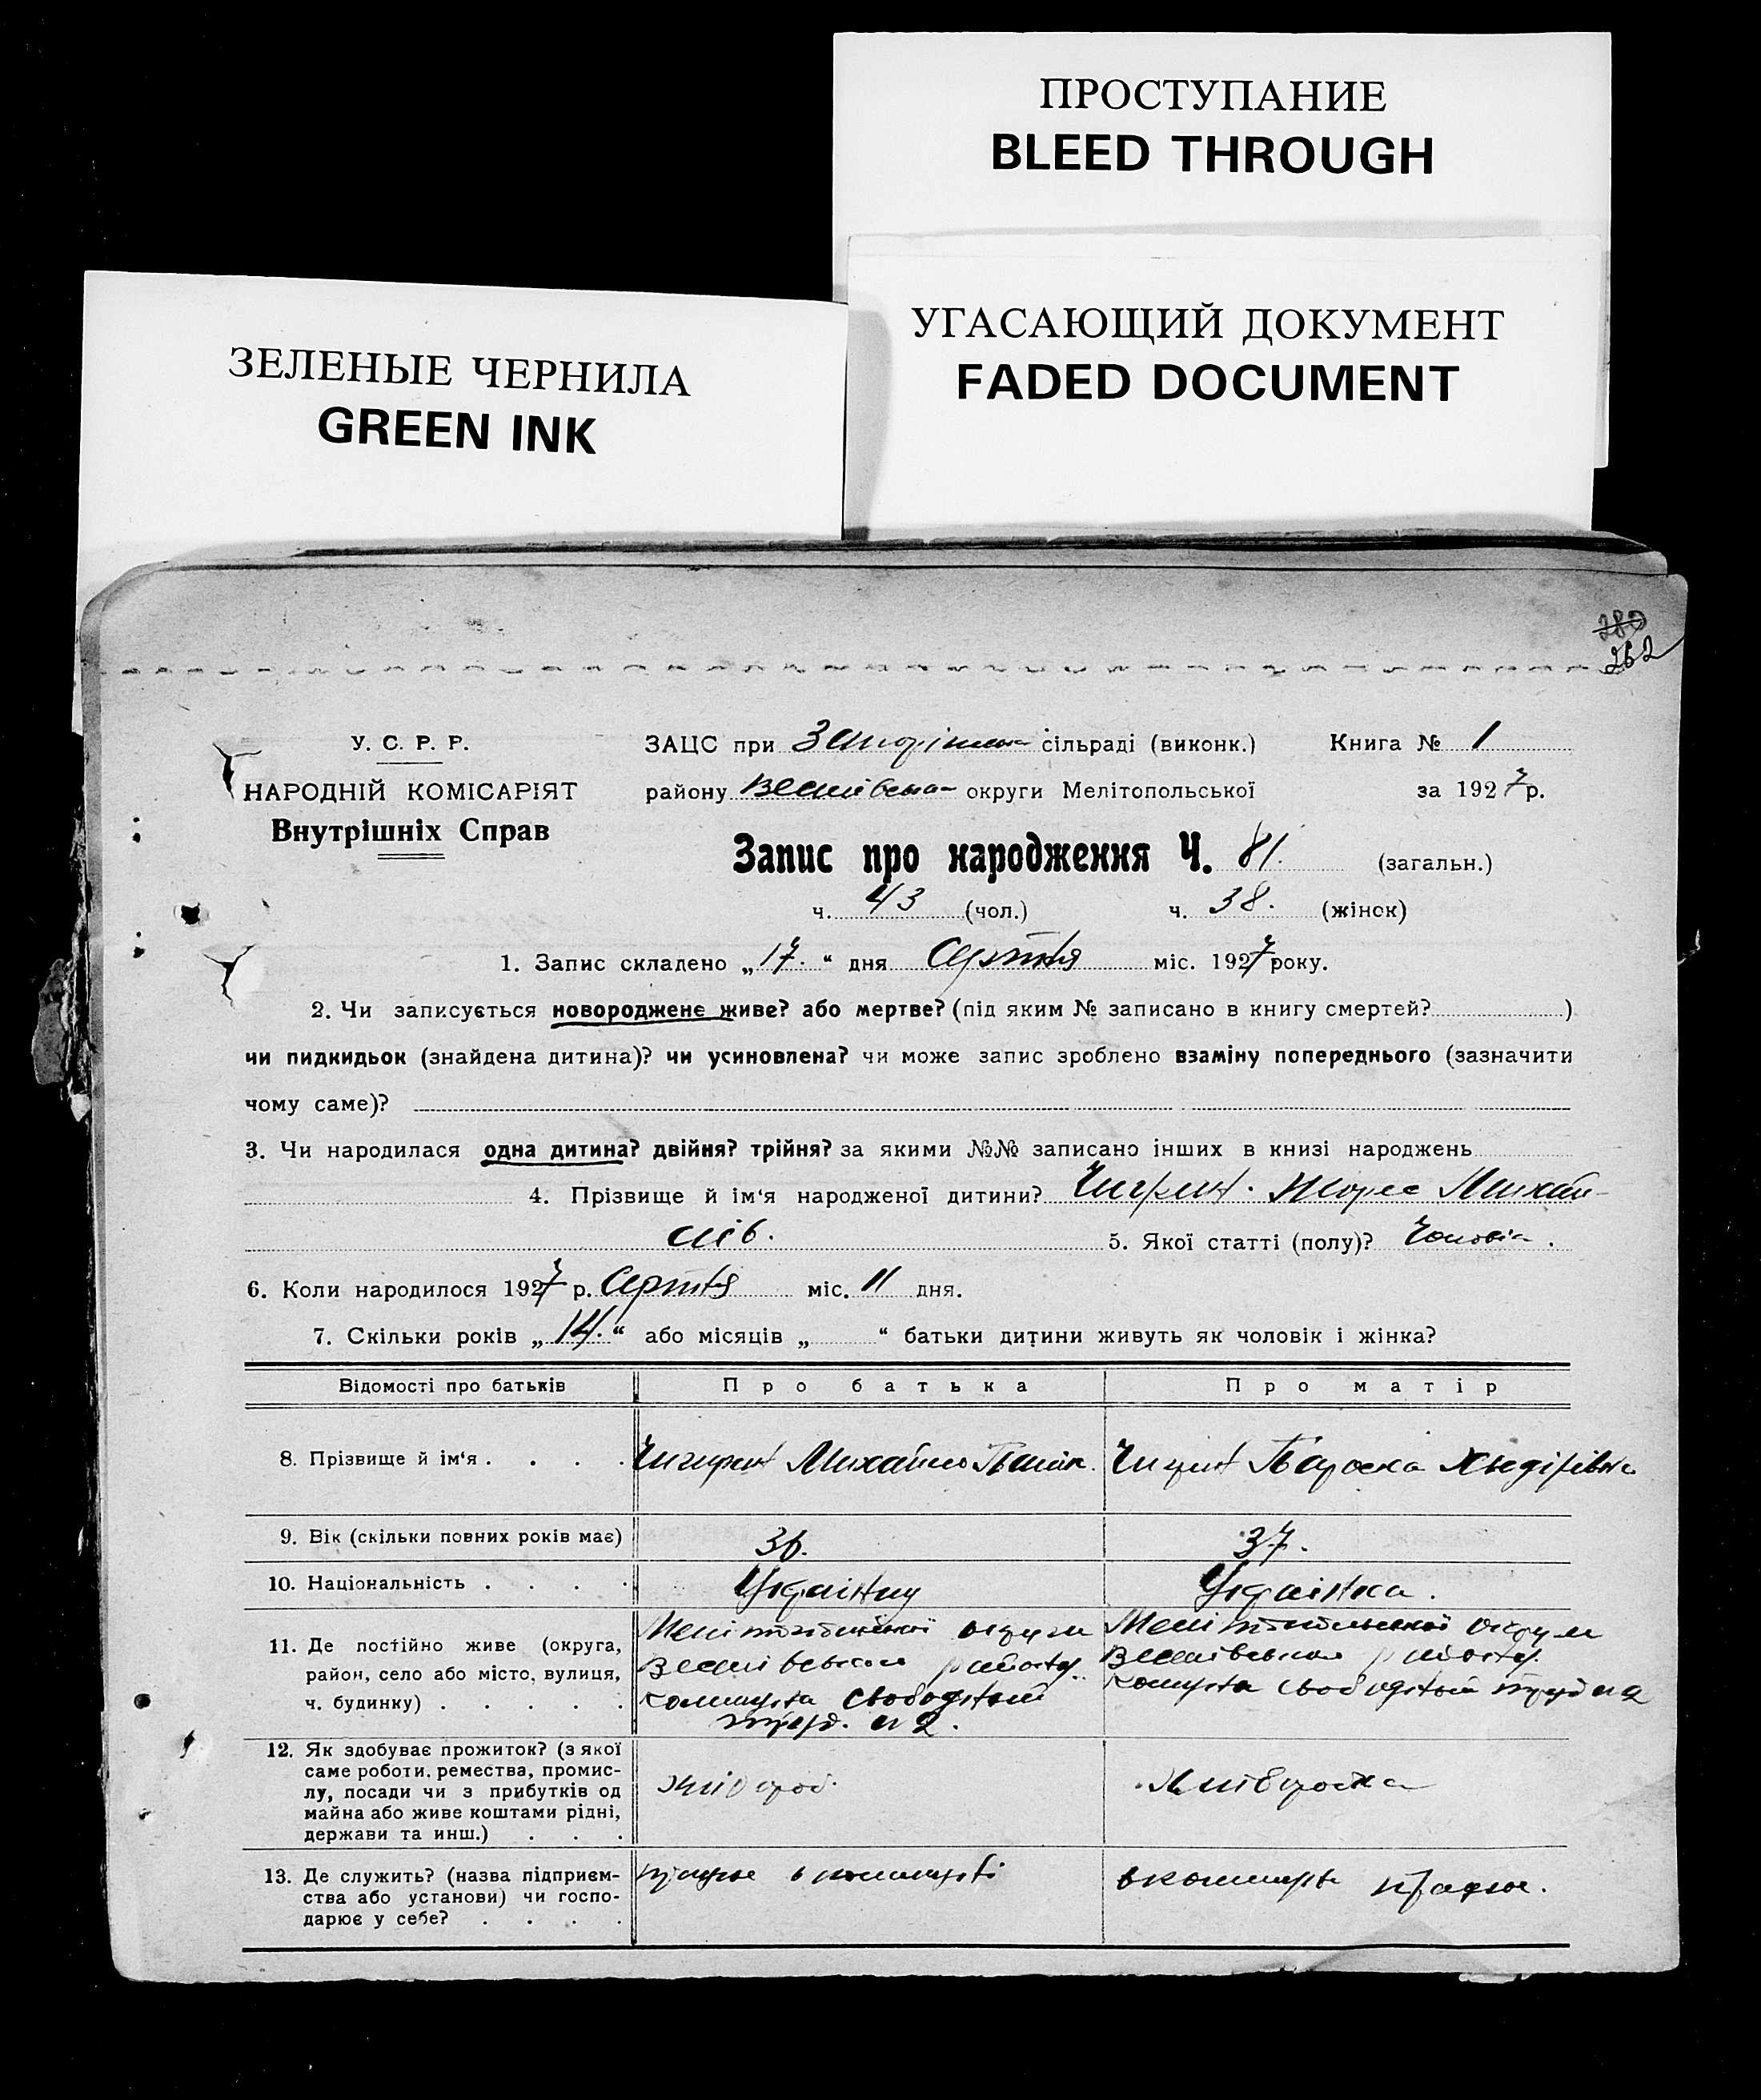 ПРОСТУПАНИЕ
BLEED THROUGH
УГАСАЮЩИЙ ДОКУМЕНТ
FADED DOCUMENT
ЗЕЛЕНЫЕ ЧЕРНИЛА
GREEN INK
280
262
У. С. Р. Р.
НАРОДНІЙ КОМІСАРІЯТ
Внутрішніх Справ
ЗАЦС при сільраді (виконк.) Книга № 1
району округи Мелітопольської за 1927 р.
Запис про народження Ч. 81. (загальн.)
ч. 43 (чол.) ч. 38. (жінок)
1. Запис складено „17.“ дня Серпня міс. 1927 року.
2. Чи записується новороджене живе? або мертве? (під яким № записано в книгу смертей? )
чи пидкидьок (знайдена дитина)? чи усиновлена? чи може запис зроблено взаміну попереднього (зазначити
чому саме)?
3. Чи народилася одна дитина? двійня? трійня? за якими №№ записано інших в книзі народжень
4. Прізвище й ім‘я народженої дитини? Михай-
лів. 5. Якої статті (полу)?
6. Коли народилося 1927 р. Серпня міс. 11 дня.
7. Скільки років „14.“ або місяців „ “ батьки дитини живуть як чоловік і жінка?
Відомості про батьків Про батька Про матір
8. Прізвище й ім‘я . . . . Чигирин Михайло
9. Вік (скільки повних років має) 36. 37.
10. Національність . . . . Українец Українка.
11. Де постійно живе (округа,
район, село або місто, вулиця,
ч. будинку) . . . . .
Мелітопільської округи
району.
Комуна свободний
труд. №2.
Мелітопольської округи
району.
Комуна свободний труд №2
12. Як здобуває прожиток? (з якої
саме роботи, ремества, промис-
лу, посади чи з прибутків од
майна або живе коштами рідні,
держави та инш.) . . .
хлібороб. Хліборобка
13. Де служить? (назва підприєм-
ства або установи) чи госпо-
дарює у себе? . . . .
працює в коммуні
в коммуне працює.